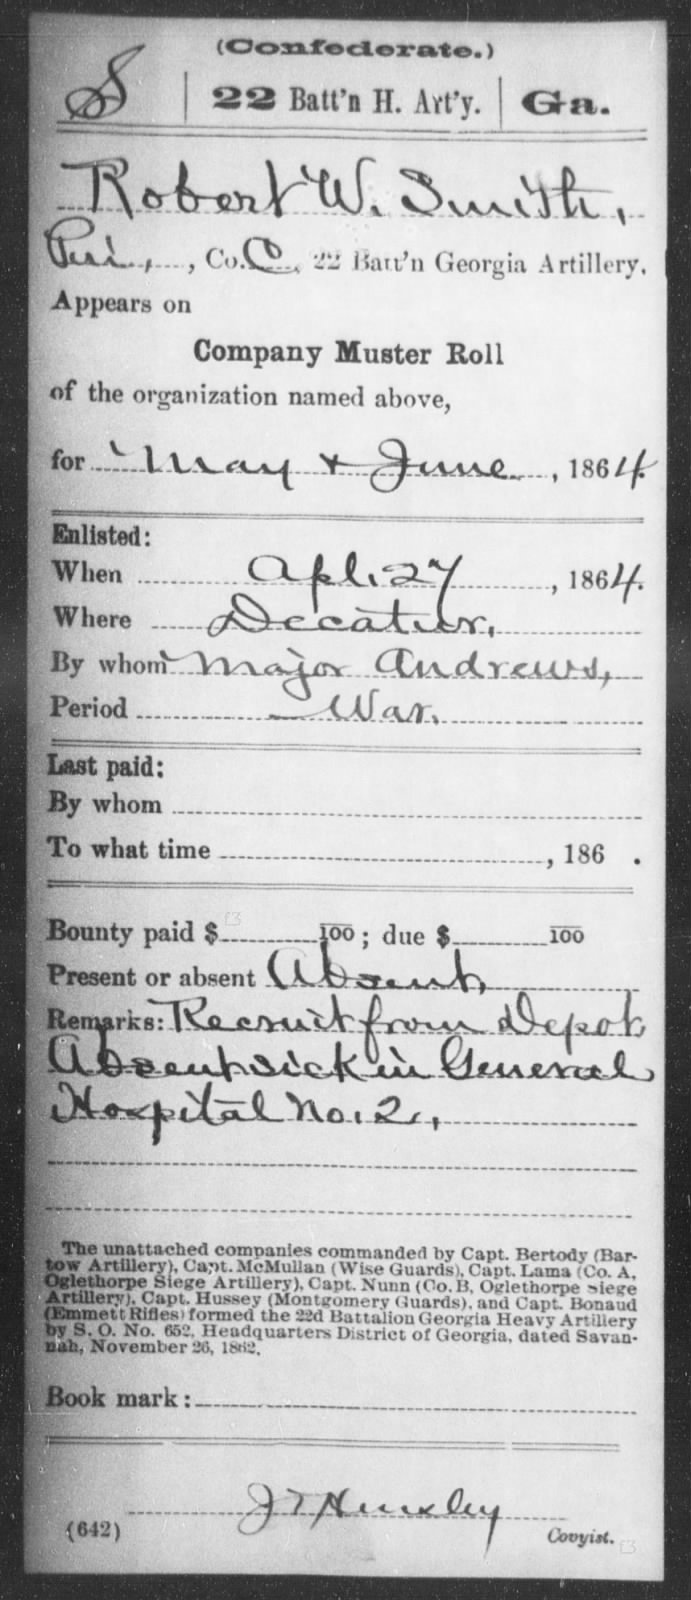 (Confederate.)
S | 22 Batt'n H. Art'y. | Ga.
Robert W. Smith,
Pri, , Co. C, 22 Batt'n Georgia Artillery.
Appears on
Company Muster Roll
of the organization named above,
for May & June, 1864.
Enlisted:
When Apl. 27, 1864.
Where Decatur,
By whom Major Andrews,
Period War.
Last paid:
By whom
To what time , 186 .
Bounty paid $ 100; due $ 100
Present or absent Absent,
Remarks: Recruit from Depot
Absent sick in General
Hospital No. 2,
The unattached companies commanded by Capt. Bertody (Bar-
tow Artillery), Capt. McMullan (Wise Guards), Capt. Lama (Co. A,
Oglethorpe Siege Artillery), Capt. Nunn (Co. B, Oglethorpe Siege
Artillery), Capt. Hussey (Montgomery Guards), and Capt. Bonaud
(Emmett Rifles) formed the 22d Battalion Georgia Heavy Artillery
by S. O. No. 652, Headquarters District of Georgia, dated Savan-
nah, November 26, 1862.
Book mark:
(642)
Copyist.